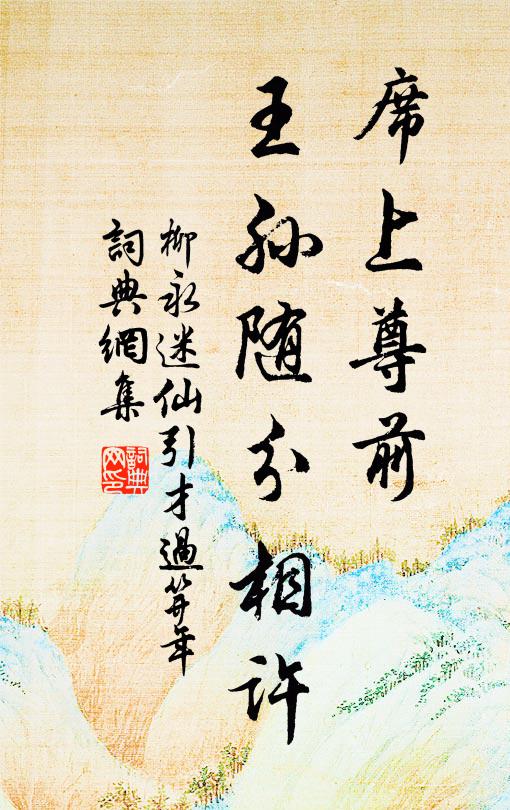 席上尊前
王孙随分相許
柳永迷仙引才過笄年
詞典網集
詞典網印